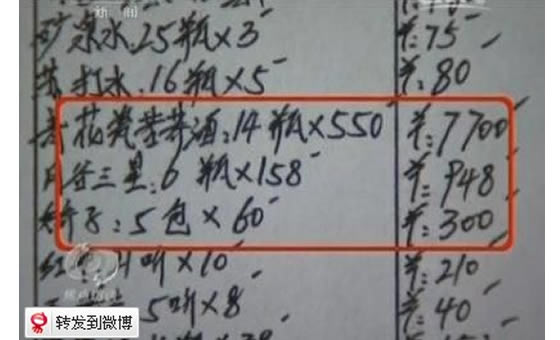 新闻
矿泉水:25瓶×3 ¥:75
苏打水:16瓶×5 ¥:80
青花瓷 酒:14瓶×550 ¥:7700
三星:6瓶×158 ¥:948
5包×60 ¥:300
红 听×10 ¥:210
5听×8 ¥:40
转发到微博